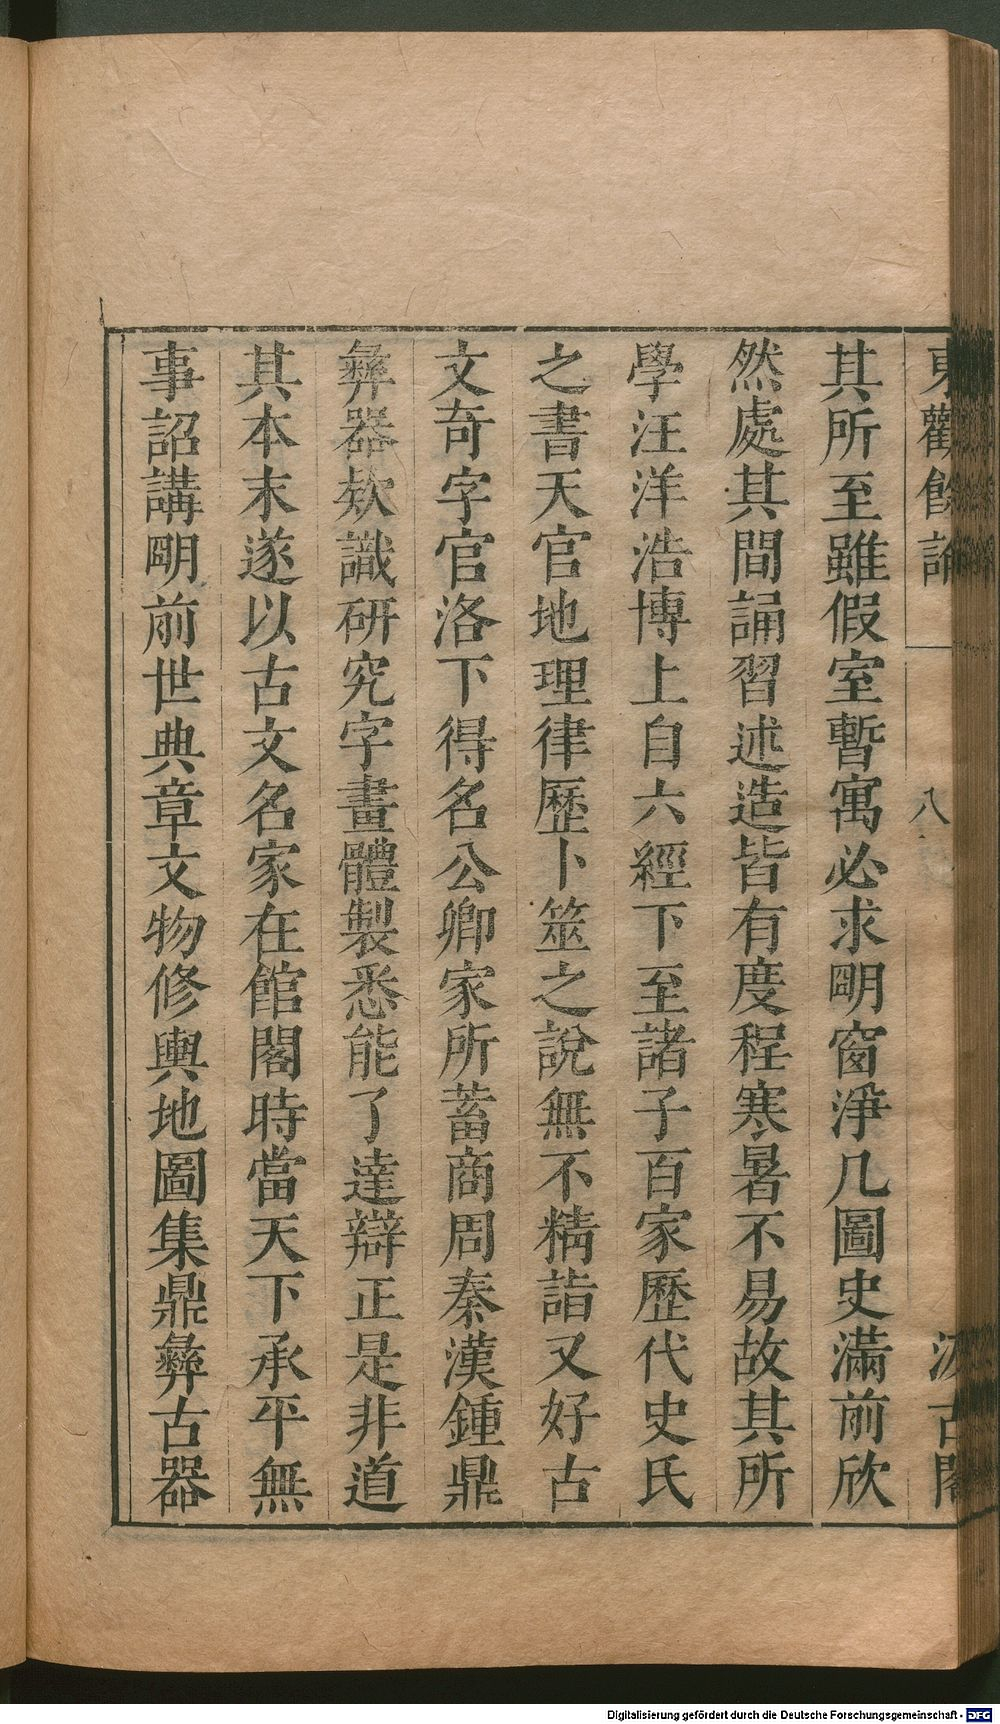 東觀餘論
八
汲古閣
其所至雖假室暫寓必求朙窗淨几圖史滿前欣
然處其間誦習述造皆有度程寒暑不易故其所
學汪洋浩博上自六經下至諸子百家歷代史氏
之書天官地理律歷卜筮之說無不精詣又好古
文奇字官洛下得名公卿家所蓄商周秦漢鍾鼎
彝器欵識研究字畫體製悉能了達辯正是非道
其本末遂以古文名家在館閣時當天下承平無
事詔講朙前世典章文物修輿地圖集鼎彝古器
Digitalisierung gefördert durch die Deutsche Forschungsgemeinschaft - DFG